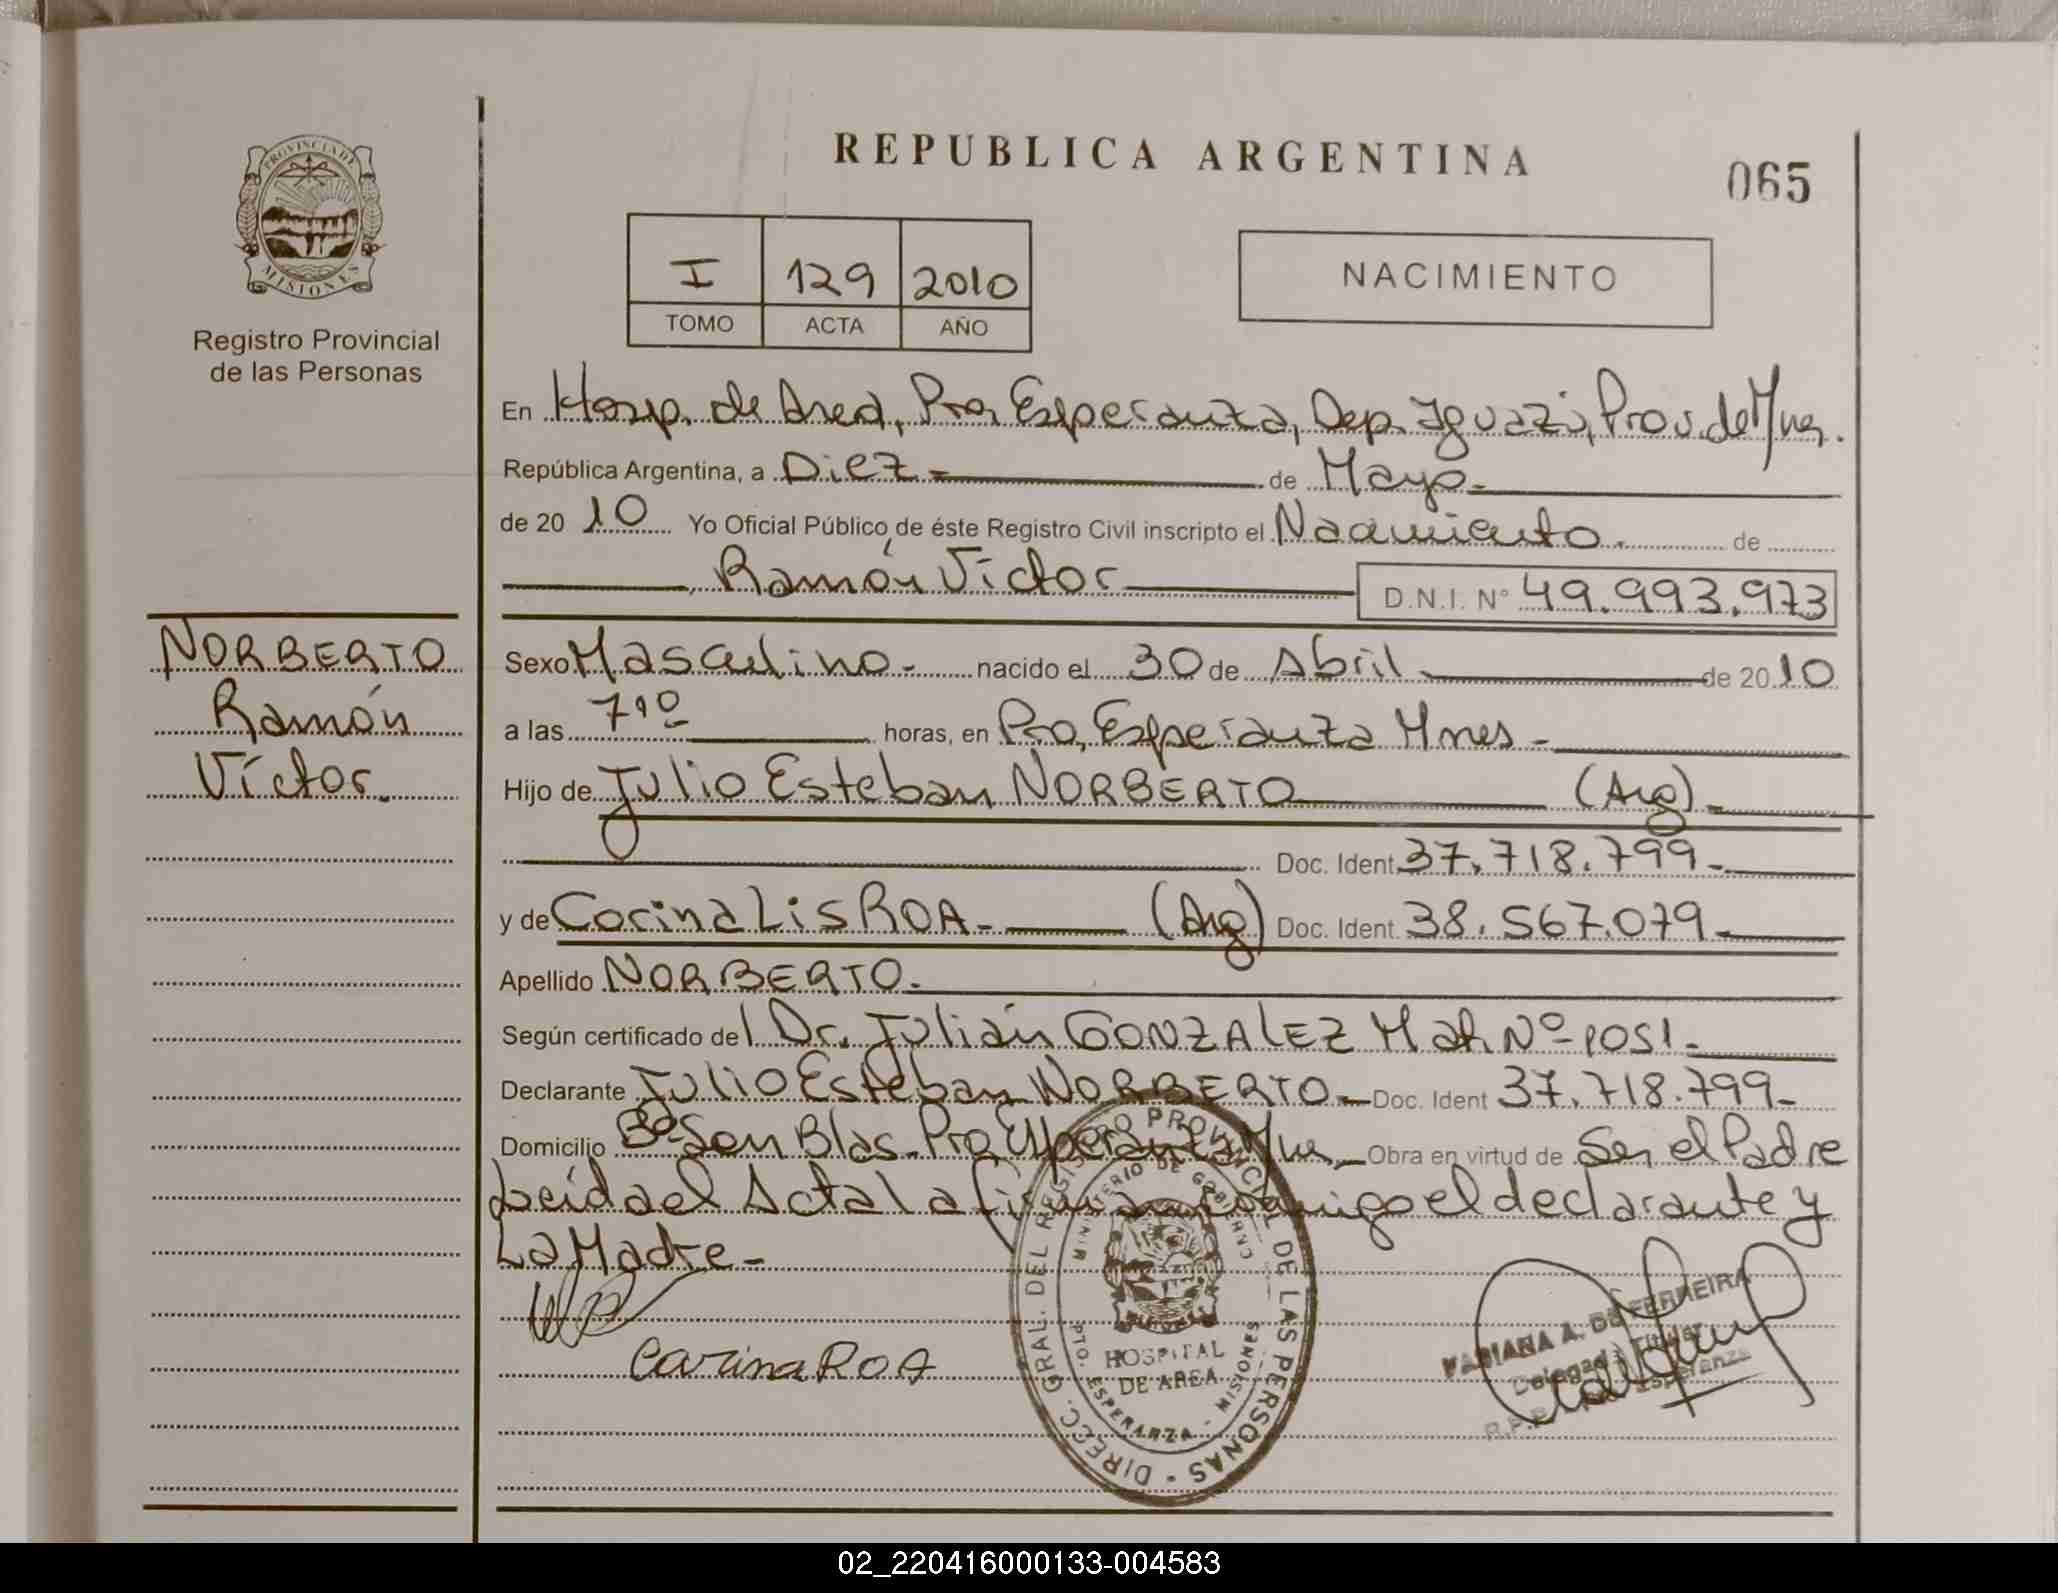 REPUBLICA ARGENTINA
065
PROVINCIA DE
MISIONES
Registro Provincial
de las Personas
I 129 2010
TOMO ACTA AÑO
NACIMIENTO
En Hosp. de Area, Pto, Esperanza, Dep. Iguazú, Prov. de Mnes.
República Argentina, a Diez - de Mayo -
de 2010 Yo Oficial Público de éste Registro Civil inscripto el Nacimiento. de
Ramón Víctor D.N.I. N° 49.993.973
NORBERTO
Ramón
Víctor.
Sexo Masculino - nacido el 30 de Abril de 2010
a las 7¹⁰ horas, en Pto, Esperanza Mnes -
Hijo de Julio Esteban NORBERTO (Arg) -
Doc. Ident. 37.718.799 -
y de Corina Lis ROA - (Arg) Doc. Ident. 38.567.079 -
Apellido NORBERTO.
Según certificado del Dr. Julián GONZALEZ Mat. Nº 1051 -
Declarante Julio Esteban NORBERTO - Doc. Ident 37.718.799 -
Domicilio Bº San Blas - Pto Esperanza Mnes - Obra en virtud de Ser el Padre
Leída el Acta la firman conmigo el declarante y
La Madre -
Carina ROA
DIRECC. GRAL. DEL REGISTRO PROVINCIAL DE LAS PERSONAS
MINISTERIO DE GOBIERNO
HOSPITAL
DE AREA
PTO. ESPERANZA - MISIONES
FABIANA A. DE FERREIRA
Delegada Titular
Esperanza
02_220416000133-004583